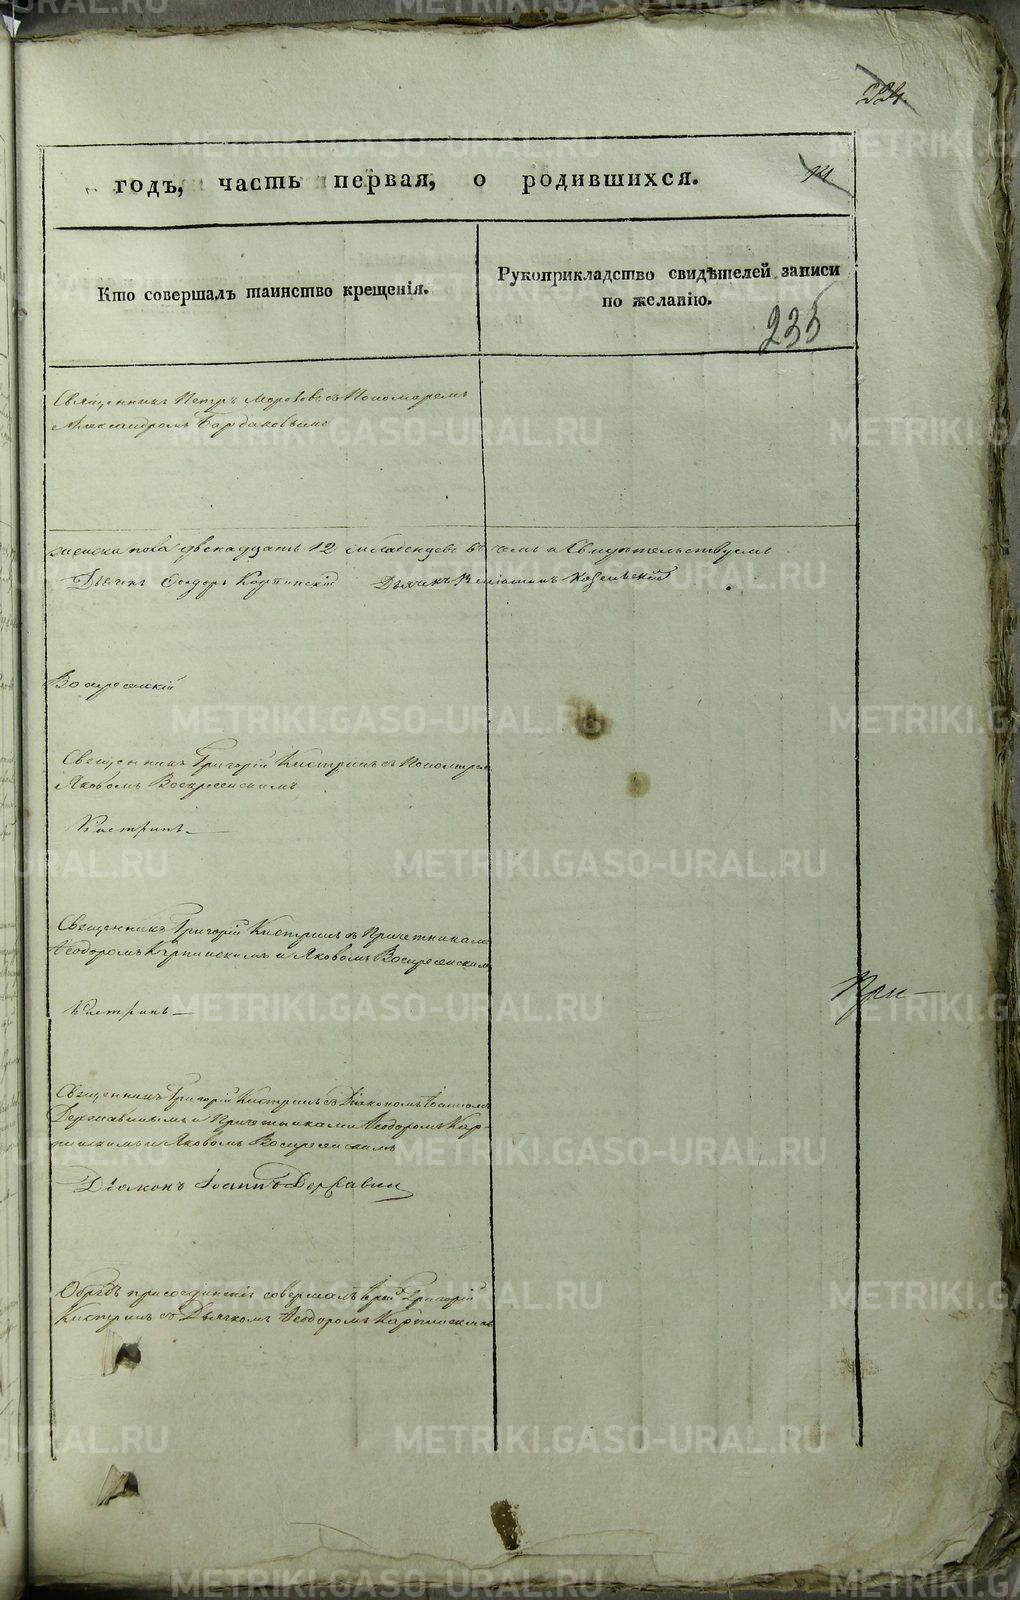 224.
годъ, часть первая, о родившихся.
Кто совершалъ таинство крещенія.
Рукоприкладство свидѣтелей записи
по желанію.
235
Священникъ Петръ съ Пономаремъ
Александромъ Бардаковымъ
двенадцать 12 въ чемъ и свидѣтельствуемъ
Дьячекъ Ѳеодоръ Карпинскій Дьячекъ
Воскресенскій
Священникъ Григорій Кистринъ съ Пономарем
Яковомъ Воскресенскимъ
Кистринъ
Священникъ Григорій Кистринъ съ Причетниками
Ѳеодоромъ Карпинскимъ и Яковомъ Воскресенскимъ
Кистринъ
Священникъ Григорій Кистринъ съ Діакономъ Іоанномъ
Державинымъ и Причетниками Ѳеодоромъ Кар-
пинскимъ и Яковомъ Воскресенскимъ
Діаконъ Іоаннъ Державин
При-
Обрядъ присоединенія совершалъ Григорій
Кистринъ съ Дьячкомъ Ѳеодоромъ Карпинским
METRIKI.GASO-URAL.RU